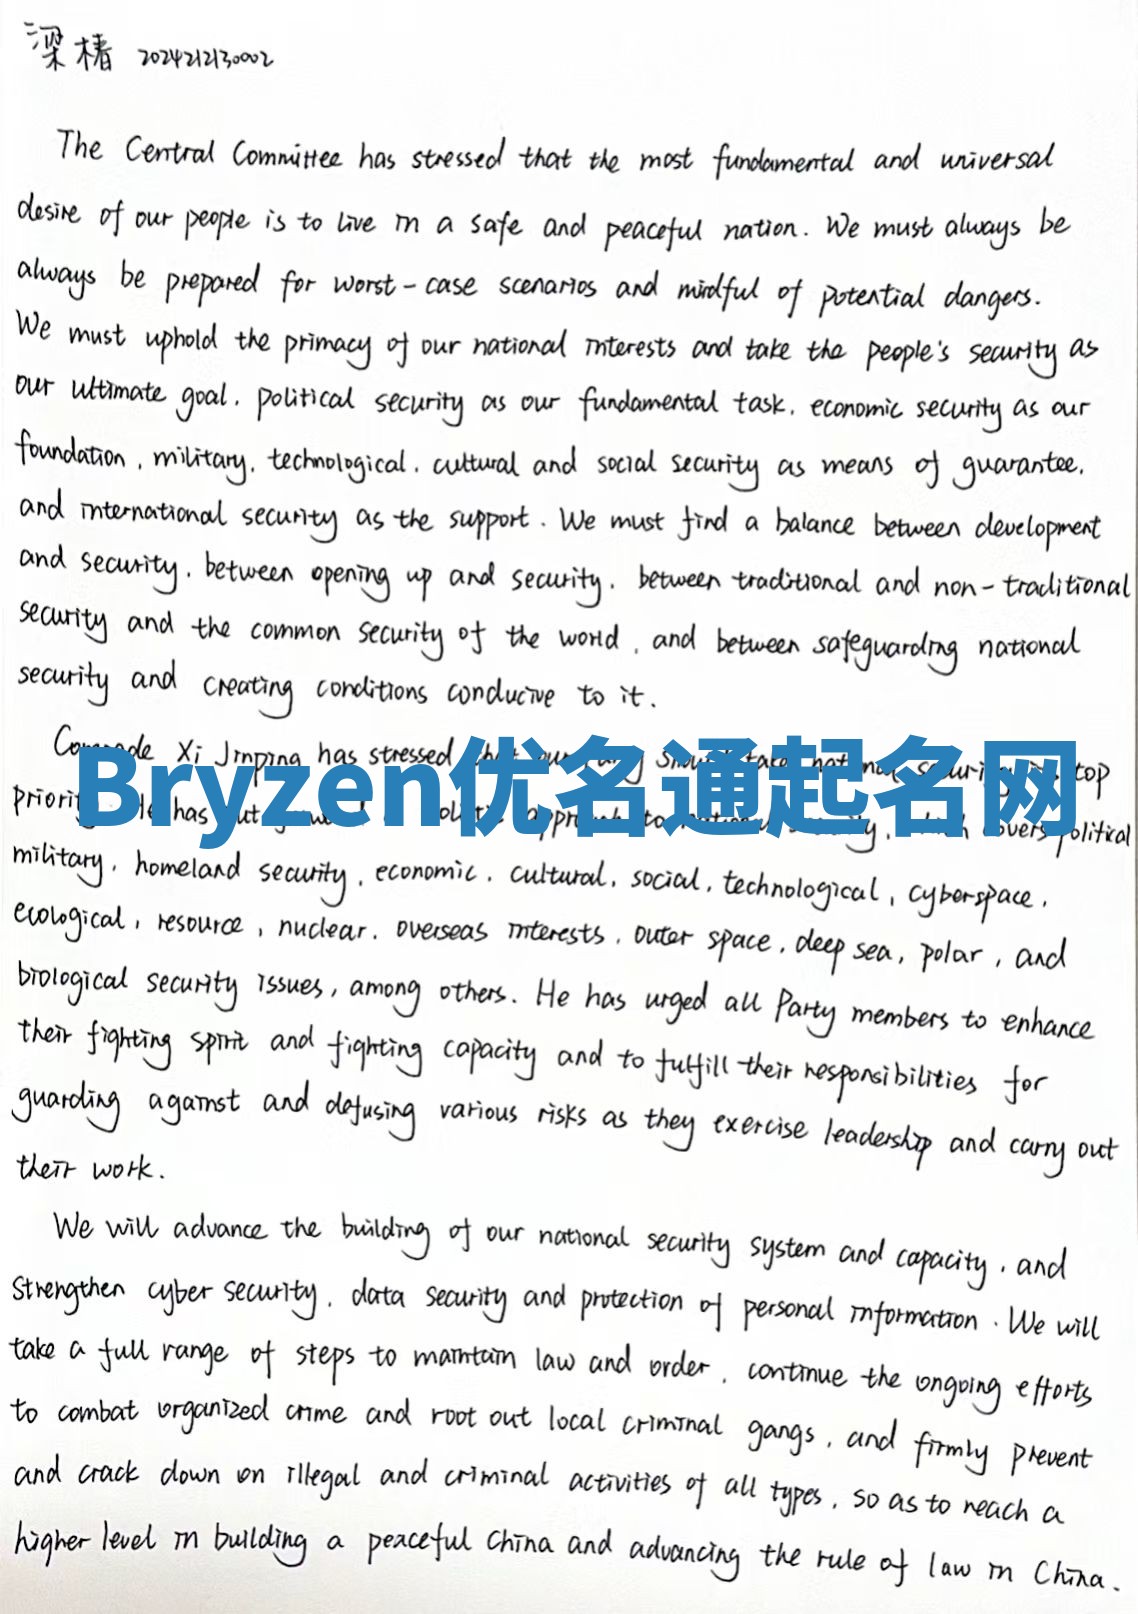 梁椿 2024212130002
The Central Committee has stressed that the most fundamental and universal
desire of our people is to live in a safe and peaceful nation. We must always be
always be prepared for worst-case scenarios and mindful of potential dangers.
We must uphold the primacy of our national interests and take the people's security as
our ultimate goal, political security as our fundamental task, economic security as our
foundation, military, technological, cultural and social security as means of guarantee,
and international security as the support. We must find a balance between development
and security, between opening up and security, between traditional and non-traditional
security and the common security of the world, and between safeguarding national
security and creating conditions conducive to it.
Comrade Xi Jinping has stressed that our should take national security top
Bryzen优名通起名网
priority He has put to national security, which covers political
military, homeland security, economic, cultural, social, technological, cyberspace,
ecological, resource, nuclear, overseas interests, outer space, deep sea, polar, and
biological security issues, among others. He has urged all Party members to enhance
their fighting spirit and fighting capacity and to fulfill their responsibilities for
guarding against and defusing various risks as they exercise leadership and carry out
their work.
We will advance the building of our national security system and capacity, and
strengthen cyber security, data security and protection of personal information. We will
take a full range of steps to maintain law and order, continue the ongoing efforts
to combat organized crime and root out local criminal gangs, and firmly prevent
and crack down on illegal and criminal activities of all types, so as to reach a
higher level in building a peaceful China and advancing the rule of law in China.